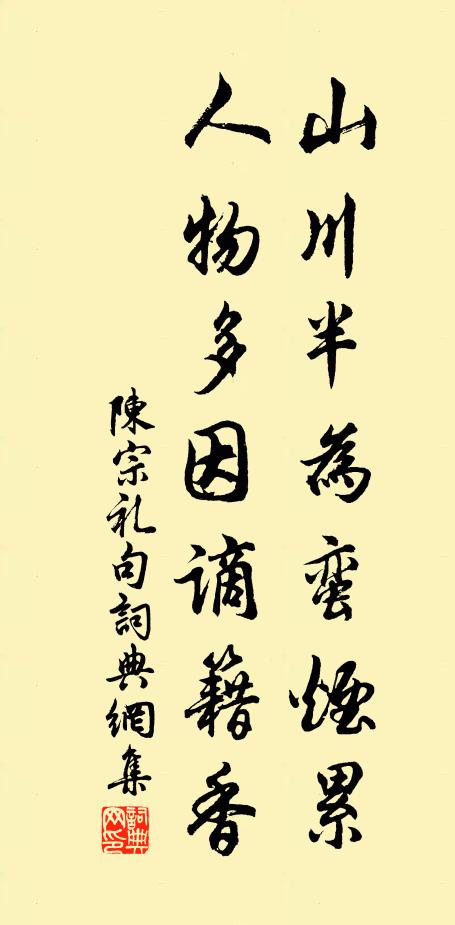 山川半為蛮煙累
人物多因謫籍香
陳宗礼句詞典網集
詞典網印